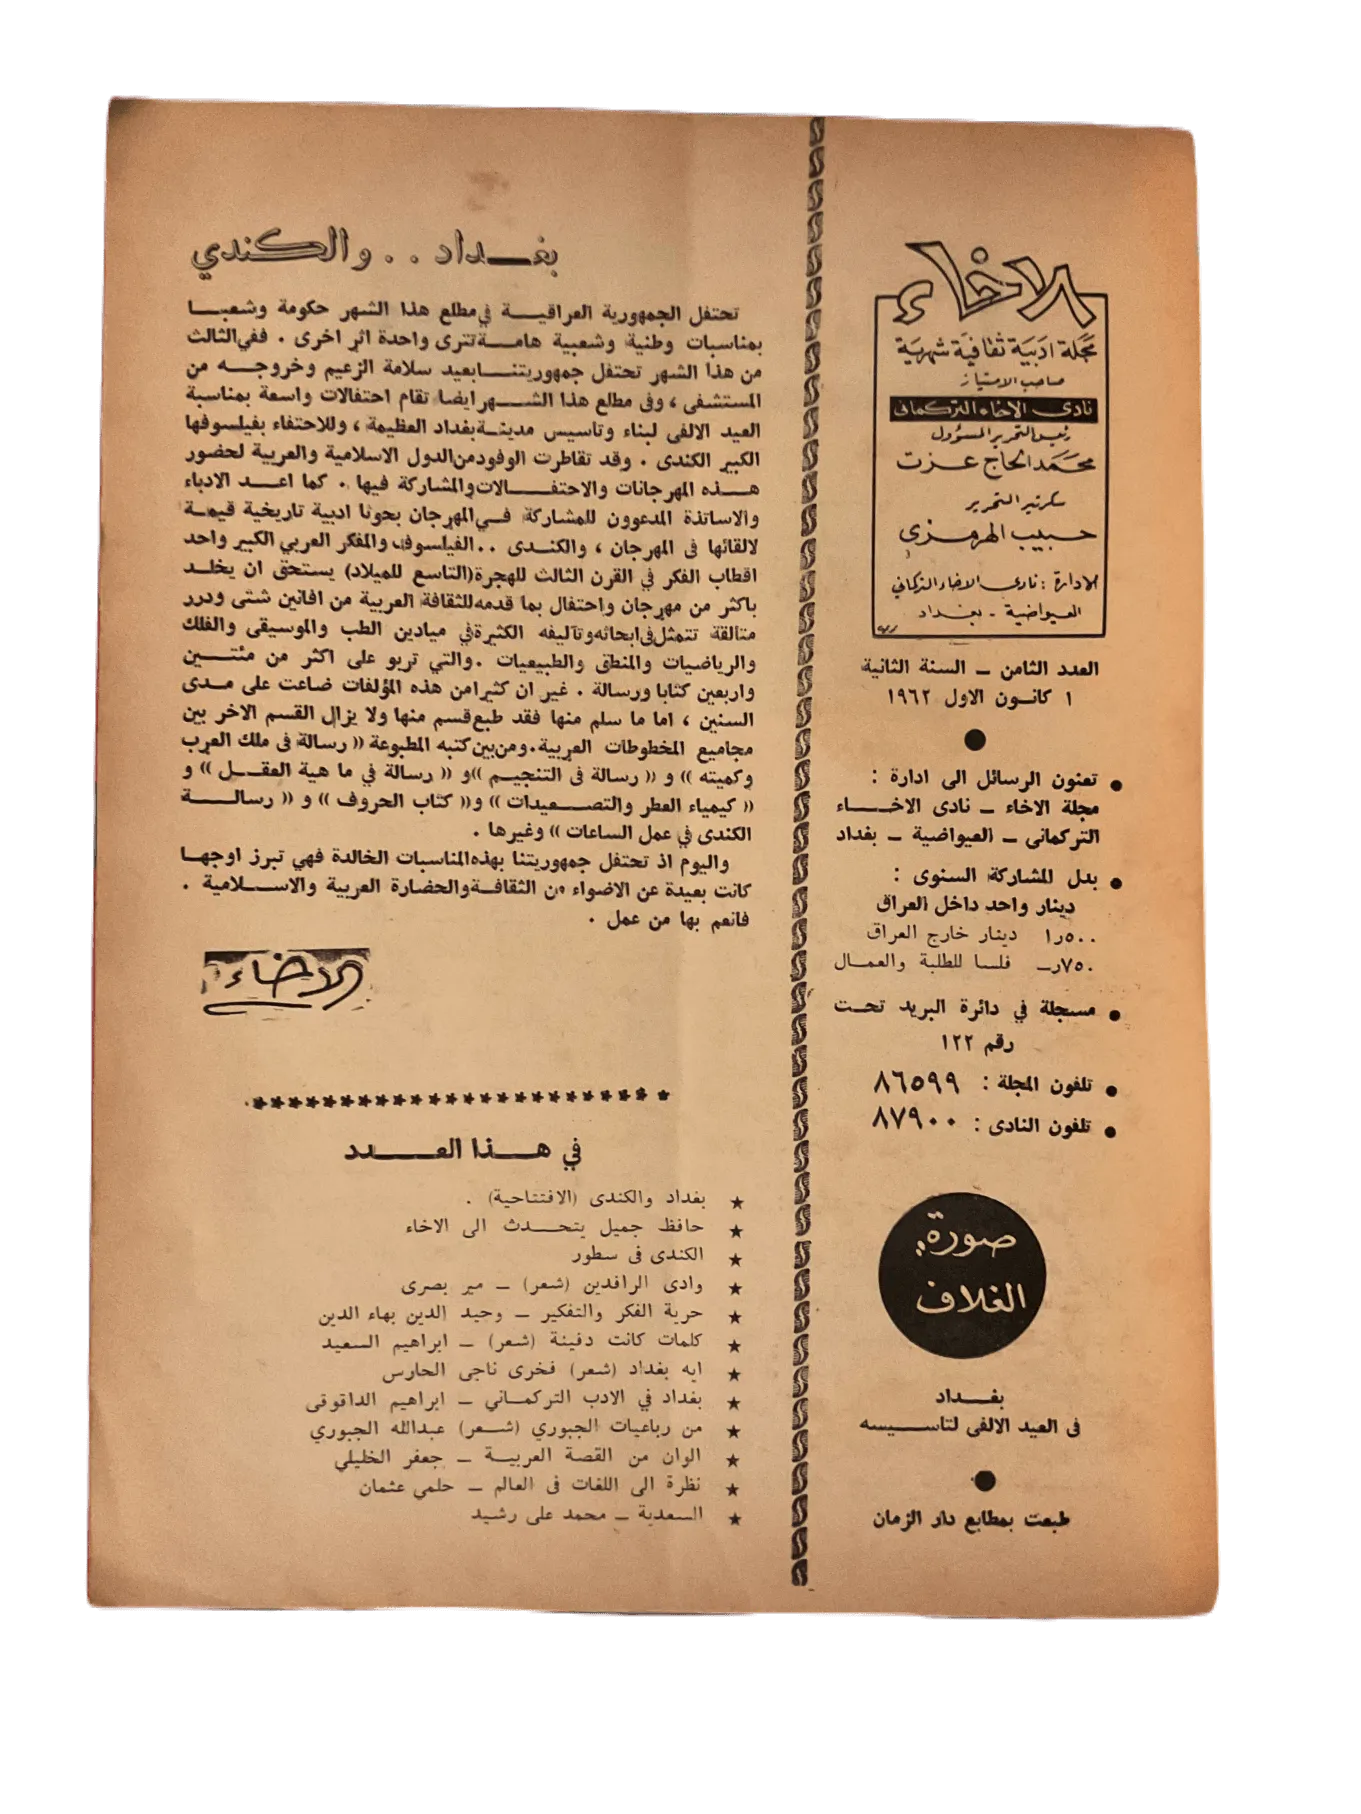 الاخاء
مجلة ادبية ثقافية شهرية
صاحب الامتياز
نادى الاخاء التركمانى
رئيس التحرير المسؤول
محمد الحاج عزت
سكرتير التحرير
حبيب الهرمزى
الادارة : نادى الاخاء التركمانى
العيواضية - بغداد
العدد الثامن ــ السنة الثانية
١ كانون الاول ١٩٦٢
● تعنون الرسائل الى ادارة :
مجلة الاخاء ــ نادى الاخاء
التركمانى ــ العيواضية ــ بغداد
● بدل المشاركة السنوى :
دينار واحد داخل العراق
٥٠٠ر١ دينار خارج العراق
٧٥٠ر ــ فلسا للطلبة والعمال
● مسجلة في دائرة البريد تحت
رقم ١٢٢
● تلفون المجلة : ٨٦٥٩٩
● تلفون النادى : ٨٧٩٠٠
صورة
الغلاف
بغداد
فى العيد الالفى لتاسيسه
طبعت بمطابع دار الزمان
بغداد . . والكندي
تحتفل الجمهورية العراقية في مطلع هذا الشهر حكومة وشعبا
بمناسبات وطنية وشعبية هامة تترى واحدة اثر اخرى . ففي الثالث
من هذا الشهر تحتفل جمهوريتنا بعيد سلامة الزعيم وخروجه من
المستشفى ، وفى مطلع هذا الشهر ايضا تقام احتفالات واسعة بمناسبة
العيد الالفى لبناء وتاسيس مدينة بغداد العظيمة ، وللاحتفاء بفيلسوفها
الكبير الكندى . وقد تقاطرت الوفود من الدول الاسلامية والعربية لحضور
هذه المهرجانات والاحتفالات والمشاركة فيها . كما اعد الادباء
والاساتذة المدعوون للمشاركة في المهرجان بحوثا ادبية تاريخية قيمة
لالقائها فى المهرجان ، والكندى .. الفيلسوف والمفكر العربي الكبير واحد
اقطاب الفكر في القرن الثالث للهجرة (التاسع للميلاد) يستحق ان يخلد
باكثر من مهرجان واحتفال بما قدمه للثقافة العربية من افانين شتى ودرر
متالقة تتمثل فى ابحاثه وتآليفه الكثيرة في ميادين الطب والموسيقى والفلك
والرياضيات والمنطق والطبيعيات . والتي تربو على اكثر من مئتين
واربعين كتابا ورسالة . غير ان كثيرا من هذه المؤلفات ضاعت على مدى
السنين ، اما ما سلم منها فقد طبع قسم منها ولا يزال القسم الاخر بين
مجاميع المخطوطات العربية . ومن بين كتبه المطبوعة « رسالة فى ملك العرب
وكميته » و « رسالة فى التنجيم » و « رسالة في ما هية العقل » و
« كيمياء العطر والتصعيدات » و« كتاب الحروف » و « رسالة
الكندى في عمل الساعات » وغيرها .
واليوم اذ تحتفل جمهوريتنا بهذه المناسبات الخالدة فهي تبرز اوجها
كانت بعيدة عن الاضواء من الثقافة والحضارة العربية والاسلامية .
فانعم بها من عمل .
الاخاء
في هذا العدد
★ بغداد والكندى (الافتتاحية) .
★ حافظ جميل يتحدث الى الاخاء
★ الكندى فى سطور
★ وادى الرافدين (شعر) ــ مير بصرى
★ حرية الفكر والتفكير ــ وحيد الدين بهاء الدين
★ كلمات كانت دفينة (شعر) ــ ابراهيم السعيد
★ ايه بغداد (شعر) فخرى ناجى الحارس
★ بغداد في الادب التركمانى ــ ابراهيم الداقوقى
★ من رباعيات الجبوري (شعر) عبدالله الجبوري
★ الوان من القصة العربية ــ جعفر الخليلي
★ نظرة الى اللغات فى العالم ــ حلمي عثمان
★ السعدية ــ محمد على رشيد